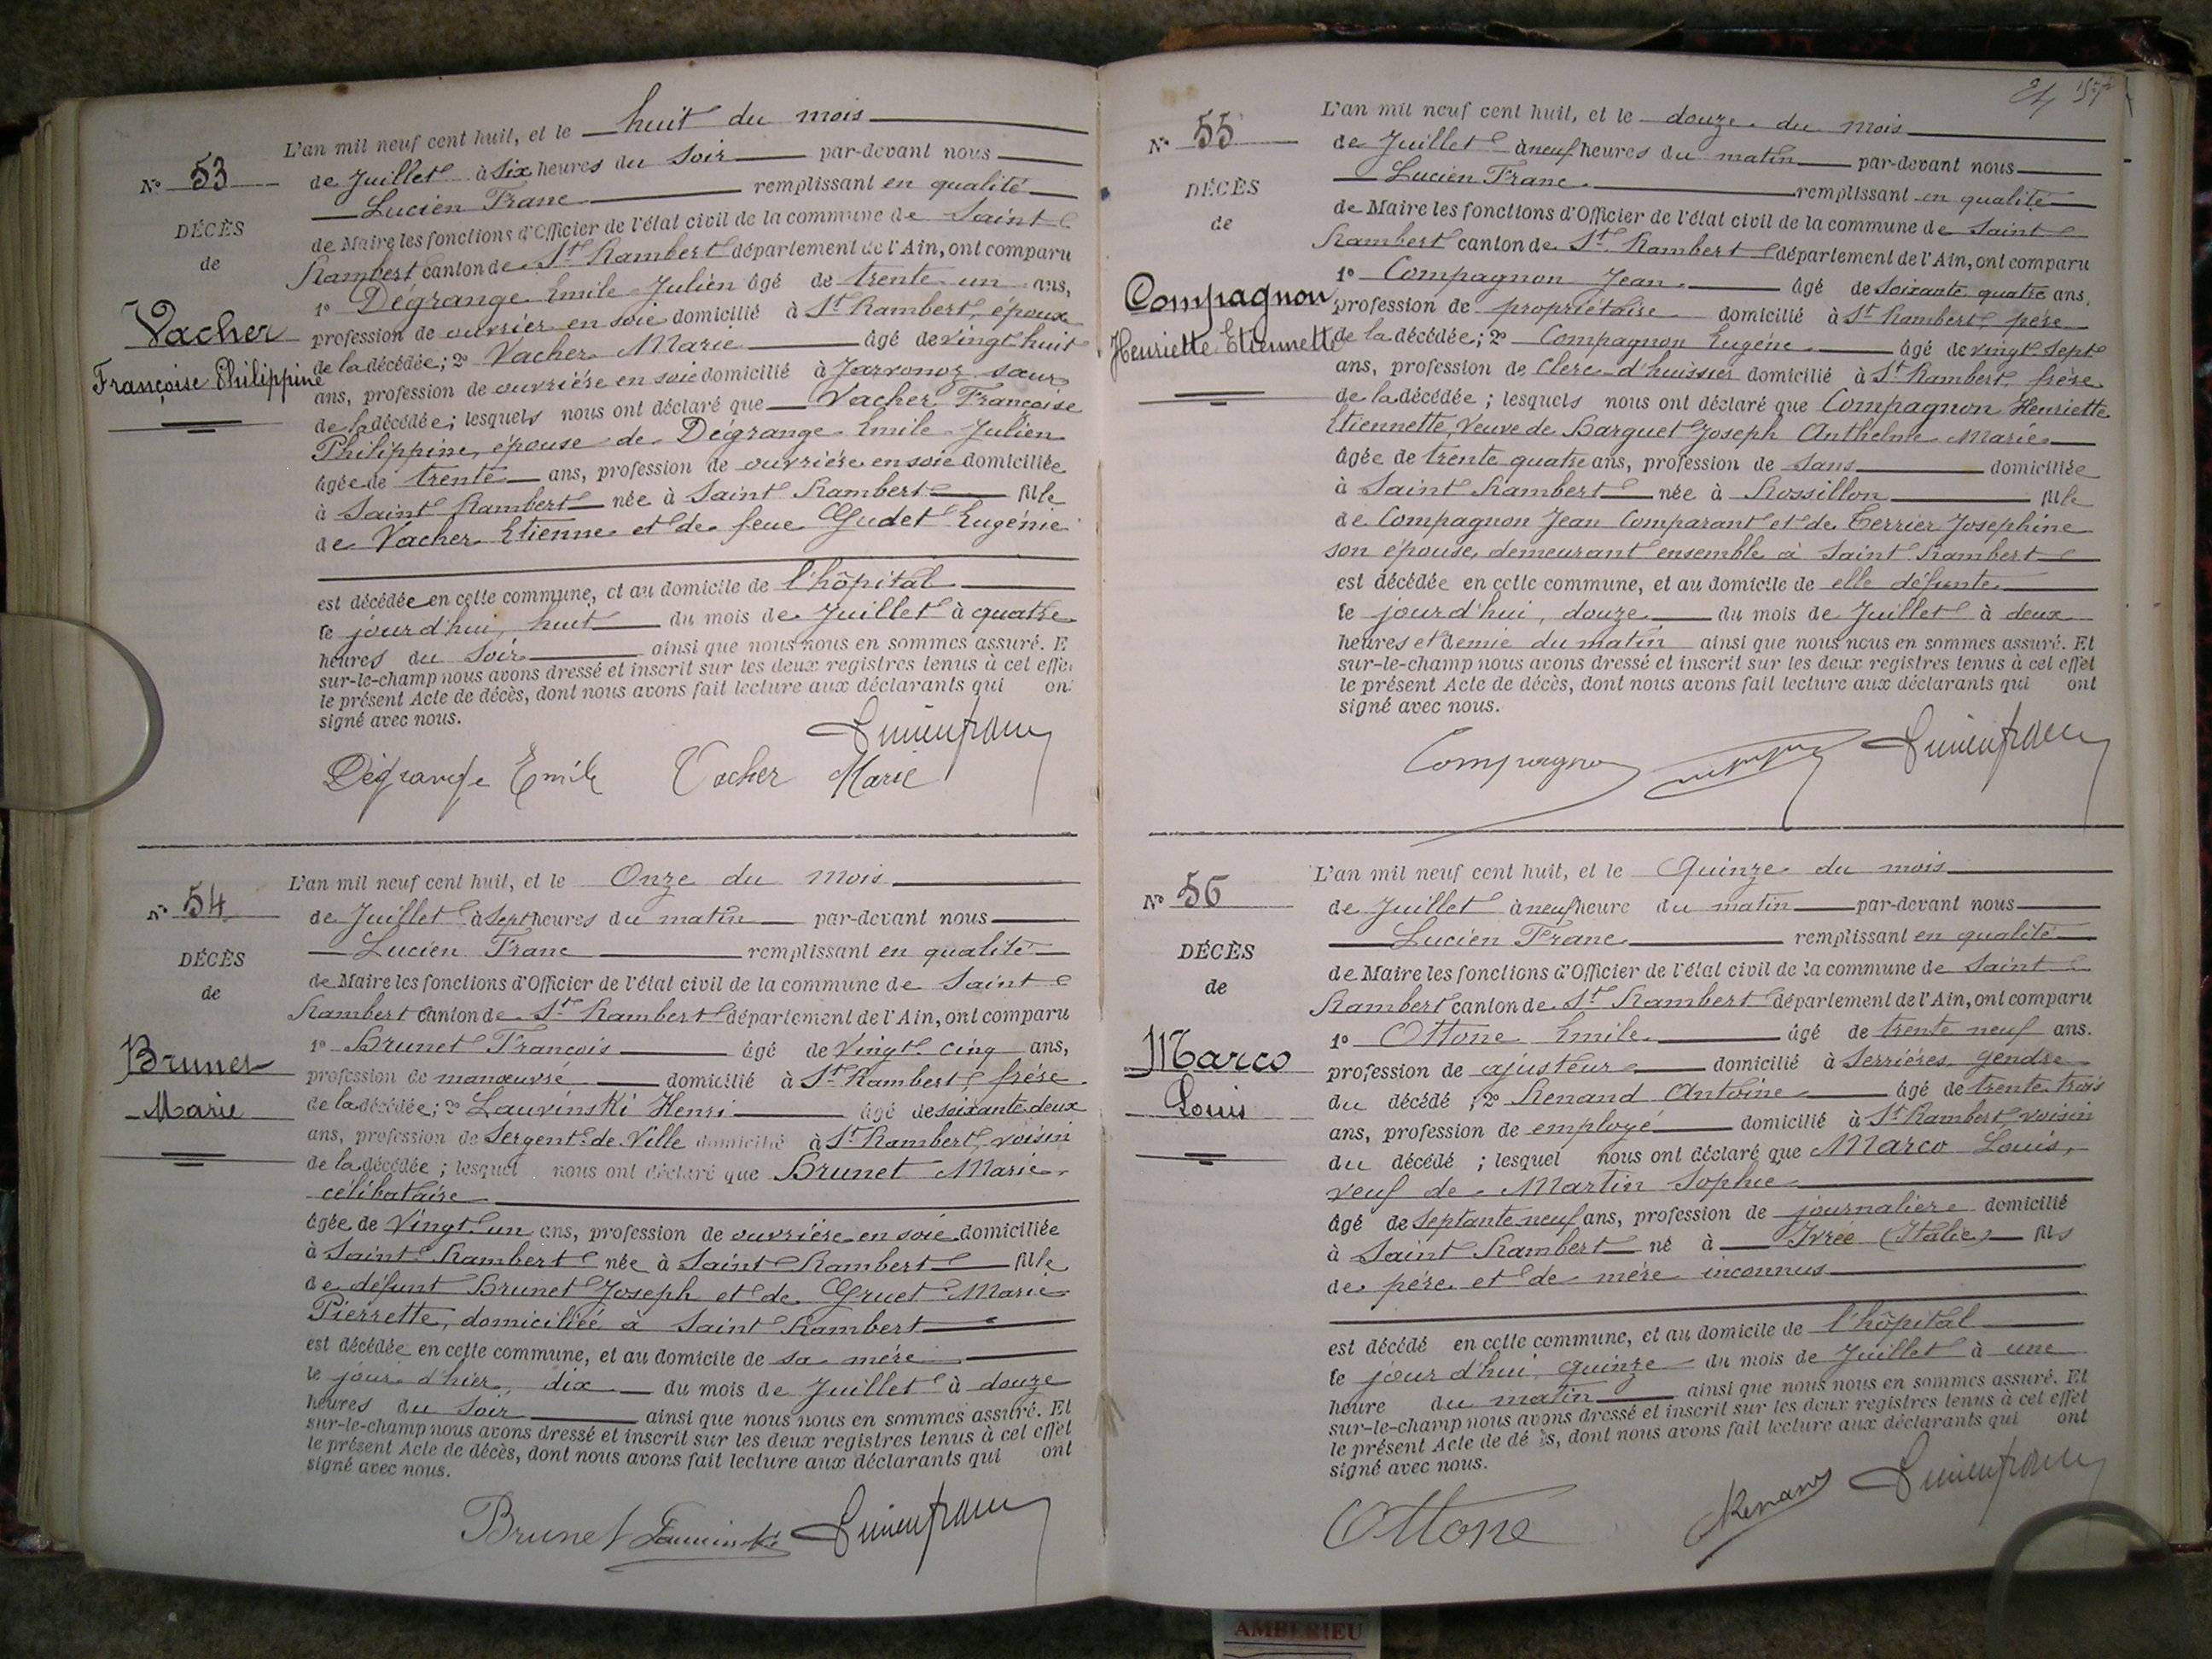 L'an mil neuf cent huit, et le huit du mois
N° 53
de Juillet à six heures du soir par-devant nous
Lucien Franc remplissant en qualité
DÉCÈS
de Maire les fonctions d'Officier de l'état civil de la commune de Saint
de
Rambert canton de St Rambert département de l'Ain, ont comparu
1° Dégrange Emile Julien âgé de trente un ans,
Vacher
profession de ouvrier en soie domicilié à St Rambert, époux
Françoise Philippine
de la décédée; 2° Vacher Marie âgé de vingt huit
ans, profession de ouvrière en soie domicilié à sœur
de la décédée; lesquels nous ont déclaré que Vacher Françoise
Philippine, épouse de Dégrange Emile Julien
âgée de trente ans, profession de ouvrière en soie domiciliée
à Saint Rambert née à Saint Rambert fille
de Vacher Etienne et de feue Gudet Eugénie
est décédée en cette commune, et au domicile de l'hôpital
le jourd'hui, huit du mois de Juillet à quatre
heures du soir ainsi que nous nous en sommes assuré. E
sur-le-champ nous avons dressé et inscrit sur les deux registres tenus à cet effe
le présent Acte de décès, dont nous avons fait lecture aux déclarants qui on
signé avec nous.
Lucien franc
Dégrange Emile Vacher Marie
L'an mil neuf cent huit, et le Onze du mois
N° 54
de Juillet à sept heures du matin par-devant nous
Lucien Franc remplissant en qualité
DÉCÈS
de Maire les fonctions d'Officier de l'état civil de la commune de Saint
de
Rambert canton de St Rambert département de l'Ain, ont comparu
1° Brunet François âgé de vingt cinq ans,
Brunet
profession de manœuvre domicilié à St Rambert, frère
Marie
de la décédée; 2° Lauvinski Henri âgé de soixante deux
ans, profession de Sergent de Ville domicilié à St Rambert, voisin
de la décédée; lesquel nous ont déclaré que Brunet Marie,
célibataire
âgée de vingt un ans, profession de ouvrière en soie domiciliée
à Saint Rambert née à Saint Rambert fille
de défunt Brunet Joseph et de Gruet Marie
Pierrette, domiciliée à Saint Rambert
est décédée en cette commune, et au domicile de sa mère
le jour d'hier, dix du mois de Juillet à douze
heures du soir ainsi que nous nous en sommes assuré. Et
sur-le-champ nous avons dressé et inscrit sur les deux registres tenus à cet effet
le présent Acte de décès, dont nous avons fait lecture aux déclarants qui ont
signé avec nous.
Brunet Lauvinski Lucien franc
L'an mil neuf cent huit, et le douze du mois
N° 55
de Juillet à neuf heures du matin par-devant nous
Lucien Franc remplissant en qualité
DÉCÈS
de Maire les fonctions d'Officier de l'état civil de la commune de Saint
de
Rambert canton de St Rambert département de l'Ain, ont comparu
1° Compagnon Jean âgé de soixante quatre ans,
Compagnon
profession de propriétaire domicilié à St Rambert, père
Henriette Etiennette
de la décédée; 2° Compagnon Eugène âgé de vingt sept
ans, profession de Clerc d'huissier domicilié à St Rambert, frère
de la décédée; lesquels nous ont déclaré que Compagnon Henriette
Etiennette, Veuve de Barquet Joseph Anthelme Marie
âgée de trente quatre ans, profession de sans domiciliée
à Saint Rambert née à Rossillon fille
de Compagnon Jean Comparant et de Terrier Josephine
son épouse, demeurant ensemble à Saint Rambert
est décédée en cette commune, et au domicile de elle défunte
le jourd'hui, douze du mois de Juillet à deux
heures et demie du matin ainsi que nous nous en sommes assuré. Et
sur-le-champ nous avons dressé et inscrit sur les deux registres tenus à cet effet
le présent Acte de décès, dont nous avons fait lecture aux déclarants qui ont
signé avec nous.
Compagnon Lucien franc
L'an mil neuf cent huit, et le quinze du mois
N° 56
de Juillet à neuf heure du matin par-devant nous
Lucien Franc remplissant en qualité
DÉCÈS
de Maire les fonctions d'Officier de l'état civil de la commune de Saint
de
Rambert canton de St Rambert département de l'Ain, ont comparu
1° Ottone Emile âgé de trente neuf ans.
Marco
profession de ajusteur domicilié à Serrières, gendre
Louis
du décédé; 2° Renand Antoine âgé de trente trois
ans, profession de employé domicilié à St Rambert, voisin
du décédé; lesquel nous ont déclaré que Marco Louis,
veuf de Martin Sophie
âgé de septante neuf ans, profession de journalière domicilié
à Saint Rambert né à Ivrée (Italie) fils
de père et de mère inconnus
est décédé en cette commune, et au domicile de l'hôpital
le jour d'hui, quinze du mois de Juillet à une
heure du matin ainsi que nous nous en sommes assuré. Et
sur-le-champ nous avons dressé et inscrit sur les deux registres tenus à cet effet
le présent Acte de dé ès, dont nous avons fait lecture aux déclarants qui ont
signé avec nous.
Ottone Renand Lucien franc
AMBERIEU